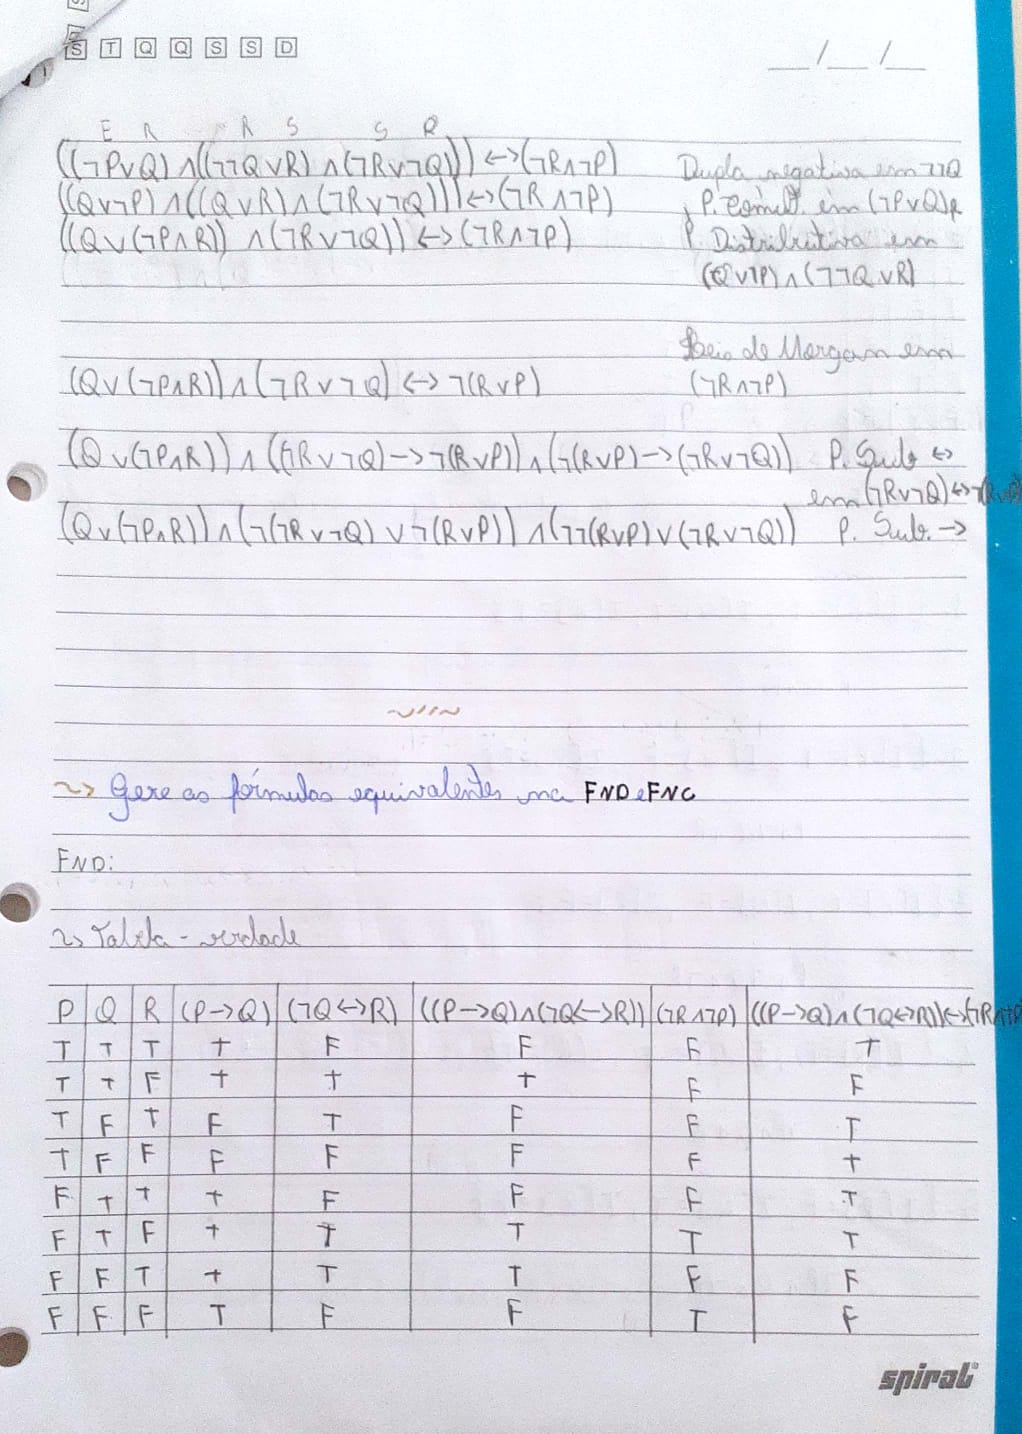 S T Q Q S S D
__/__/__
E R R S S R
((¬P∨Q) ∧((¬¬Q∨R) ∧(¬R∨¬Q))) ↔(¬R∧¬P) Dupla negativa em ¬¬Q
((Q∨¬P) ∧((Q∨R)∧(¬R∨¬Q)))↔(¬R∧¬P) P. Comut. em (¬P∨Q)
((Q∨(¬P∧R)) ∧(¬R∨¬Q)) ↔(¬R∧¬P) P. Distributiva em
(Q∨¬P)∧(¬¬Q∨R)
Leis de Morgan em
(Q∨(¬P∧R))∧(¬R∨¬Q) ↔ ¬(R∨P) (¬R∧¬P)
(Q∨(¬P∧R)) ∧((¬R∨¬Q)→¬(R∨P))∧(¬(R∨P)→(¬R∨¬Q)) P. Sub ↔
em (¬R∨¬Q)↔¬(R∨P)
(Q∨(¬P∧R))∧(¬(¬R∨¬Q) ∨¬(R∨P)) ∧(¬¬(R∨P)∨(¬R∨¬Q)) P. Sub. →
~> Gere as fórmulas equivalentes na FND e FNC
FND:
~> Tabela-verdade
P Q R (P→Q) (¬Q↔R) ((P→Q)∧(¬Q↔R)) (¬R∧¬P) ((P→Q)∧(¬Q↔R))↔(¬R∧¬P)
T T T T F F F T
T T F T T T F F
T F T F T F F T
T F F F F F F T
F T T T F F F T
F T F T T T T T
F F T T T T F F
F F F T F F T F
spiral